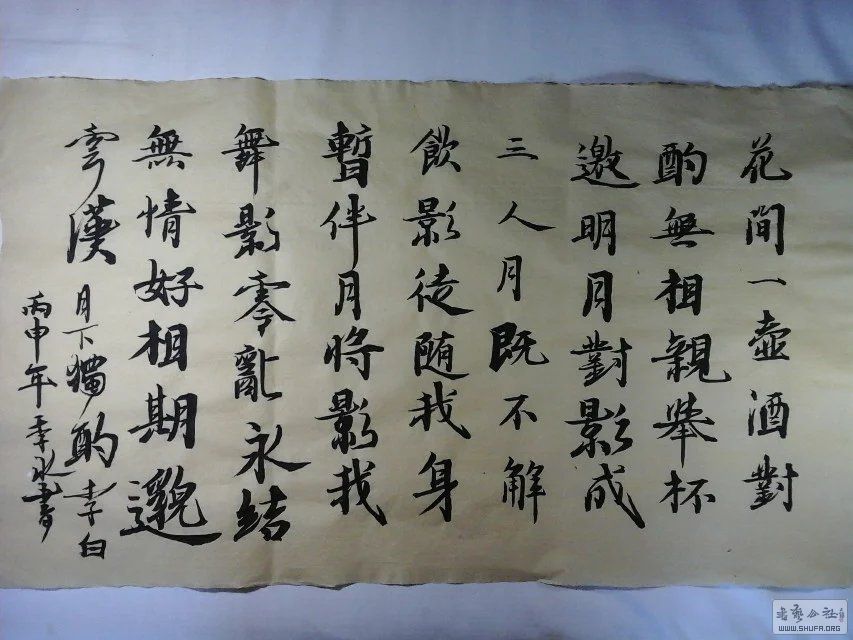 花間一壺酒對
酌無相親舉杯
邀明月對影成
三人月既不解
飲影徒随我身
暫伴月將影我
舞影零亂永結
無情好相期邈
雲漢
月下獨酌李白
丙申年季永書
书艺公社
WWW.SHUFA.ORG